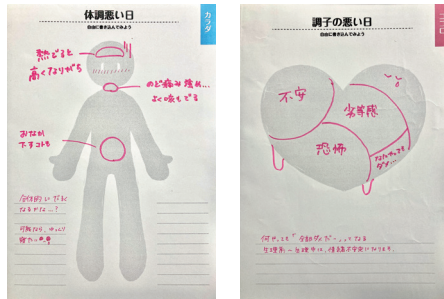 体調悪い日
自由に書き込んでみよう
カラダ
熱でると
高くなりがち
のど痛み 腫れ…
よく咳もでる
おなか
下すコトも
全体的にだるく
なるかな…?
可能なら、ゆっくり
寝たい
調子の悪い日
自由に書き込んでみよう
ココロ
不安
劣等感
恐怖
なにやっても
ダメ…
何やっても「全部ダメだー」ってなる
生理前〜生理中は、情緒不安定になりがち